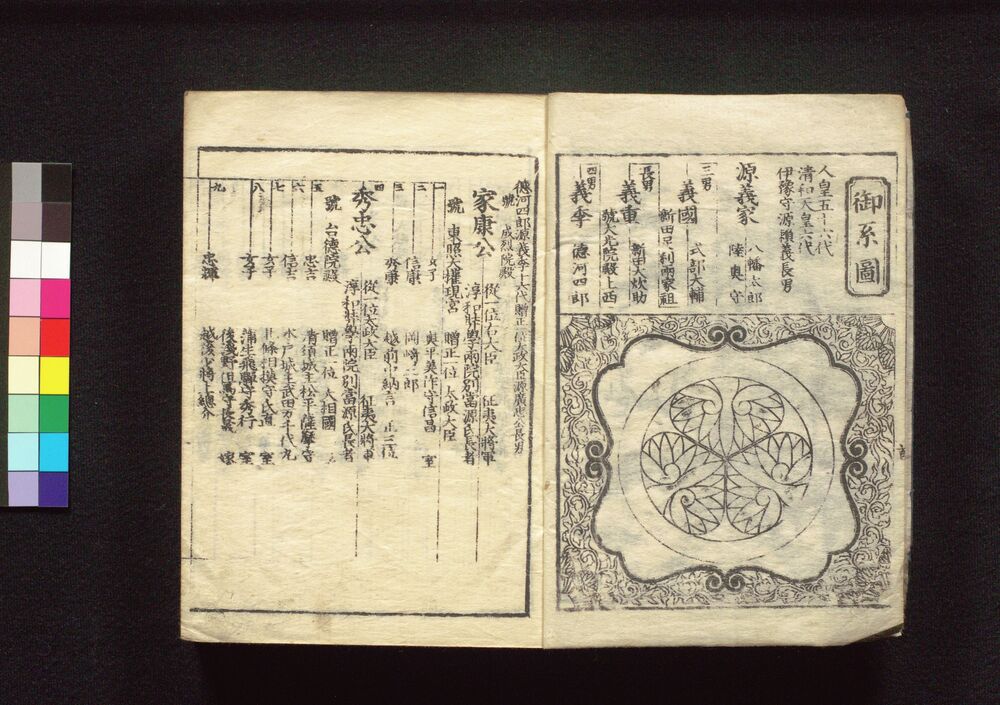 御系圖
人皇五十六代
清和天皇六代
伊豫守源頼義長男
源義家
八幡太郎
陸奥守
三男
義國
式部大輔
新田足利両家祖
長男
義重
新田大炊助
號大光院殿上西
四男
義季
徳河四郎
徳河四郎源義季十六代贈正一位太政大臣源廣忠公長男
號
成烈院殿
家康公
從一位右大臣
征夷大將軍
淳和奨學両院別當源氏長者
號
東照大権現宮
贈正一位
太政大臣
一
女子
奥平美作守信昌
室
二
信康
岡崎三郎
三
秀康
越前中納言
正三位
四
秀忠公
從一位太政大臣
征夷大將軍
淳和奨學両院別當源氏長者
號
台徳院殿
贈正一位
大相國
五
忠吉
清須城主松平薩摩守
六
信吉
水戸城主武田万千代丸
七
女子
北條相模守氏直
室
八
女子
蒲生飛騨守秀行
室
九
忠輝
越後少將上總介